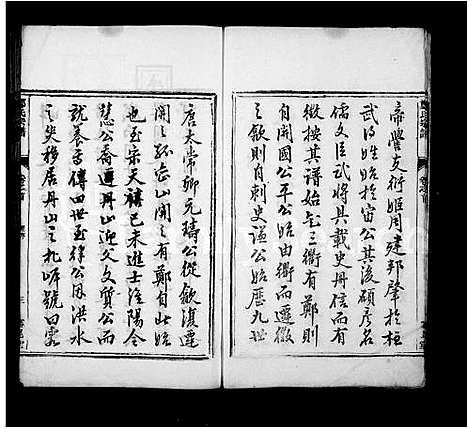 帝譽支衍姬周建邦肇於桓
武得姓始於宙公其後碩彥名
儒文臣武將具載史冊信而有
徵按其譜始迄三衢有鄭則
自開國公平公始由衢而遷徽
之歙則自刺史謐公始歷九世
唐太常卿元璹公從歙復遷
開之孫岱山開之有鄭自此始
也至宋天禧己未進士涇陽令
慧公喬遷丹山迎父文質公而
就養焉傳四世至徐公因洪水
之災移居丹山之北
號曰雲